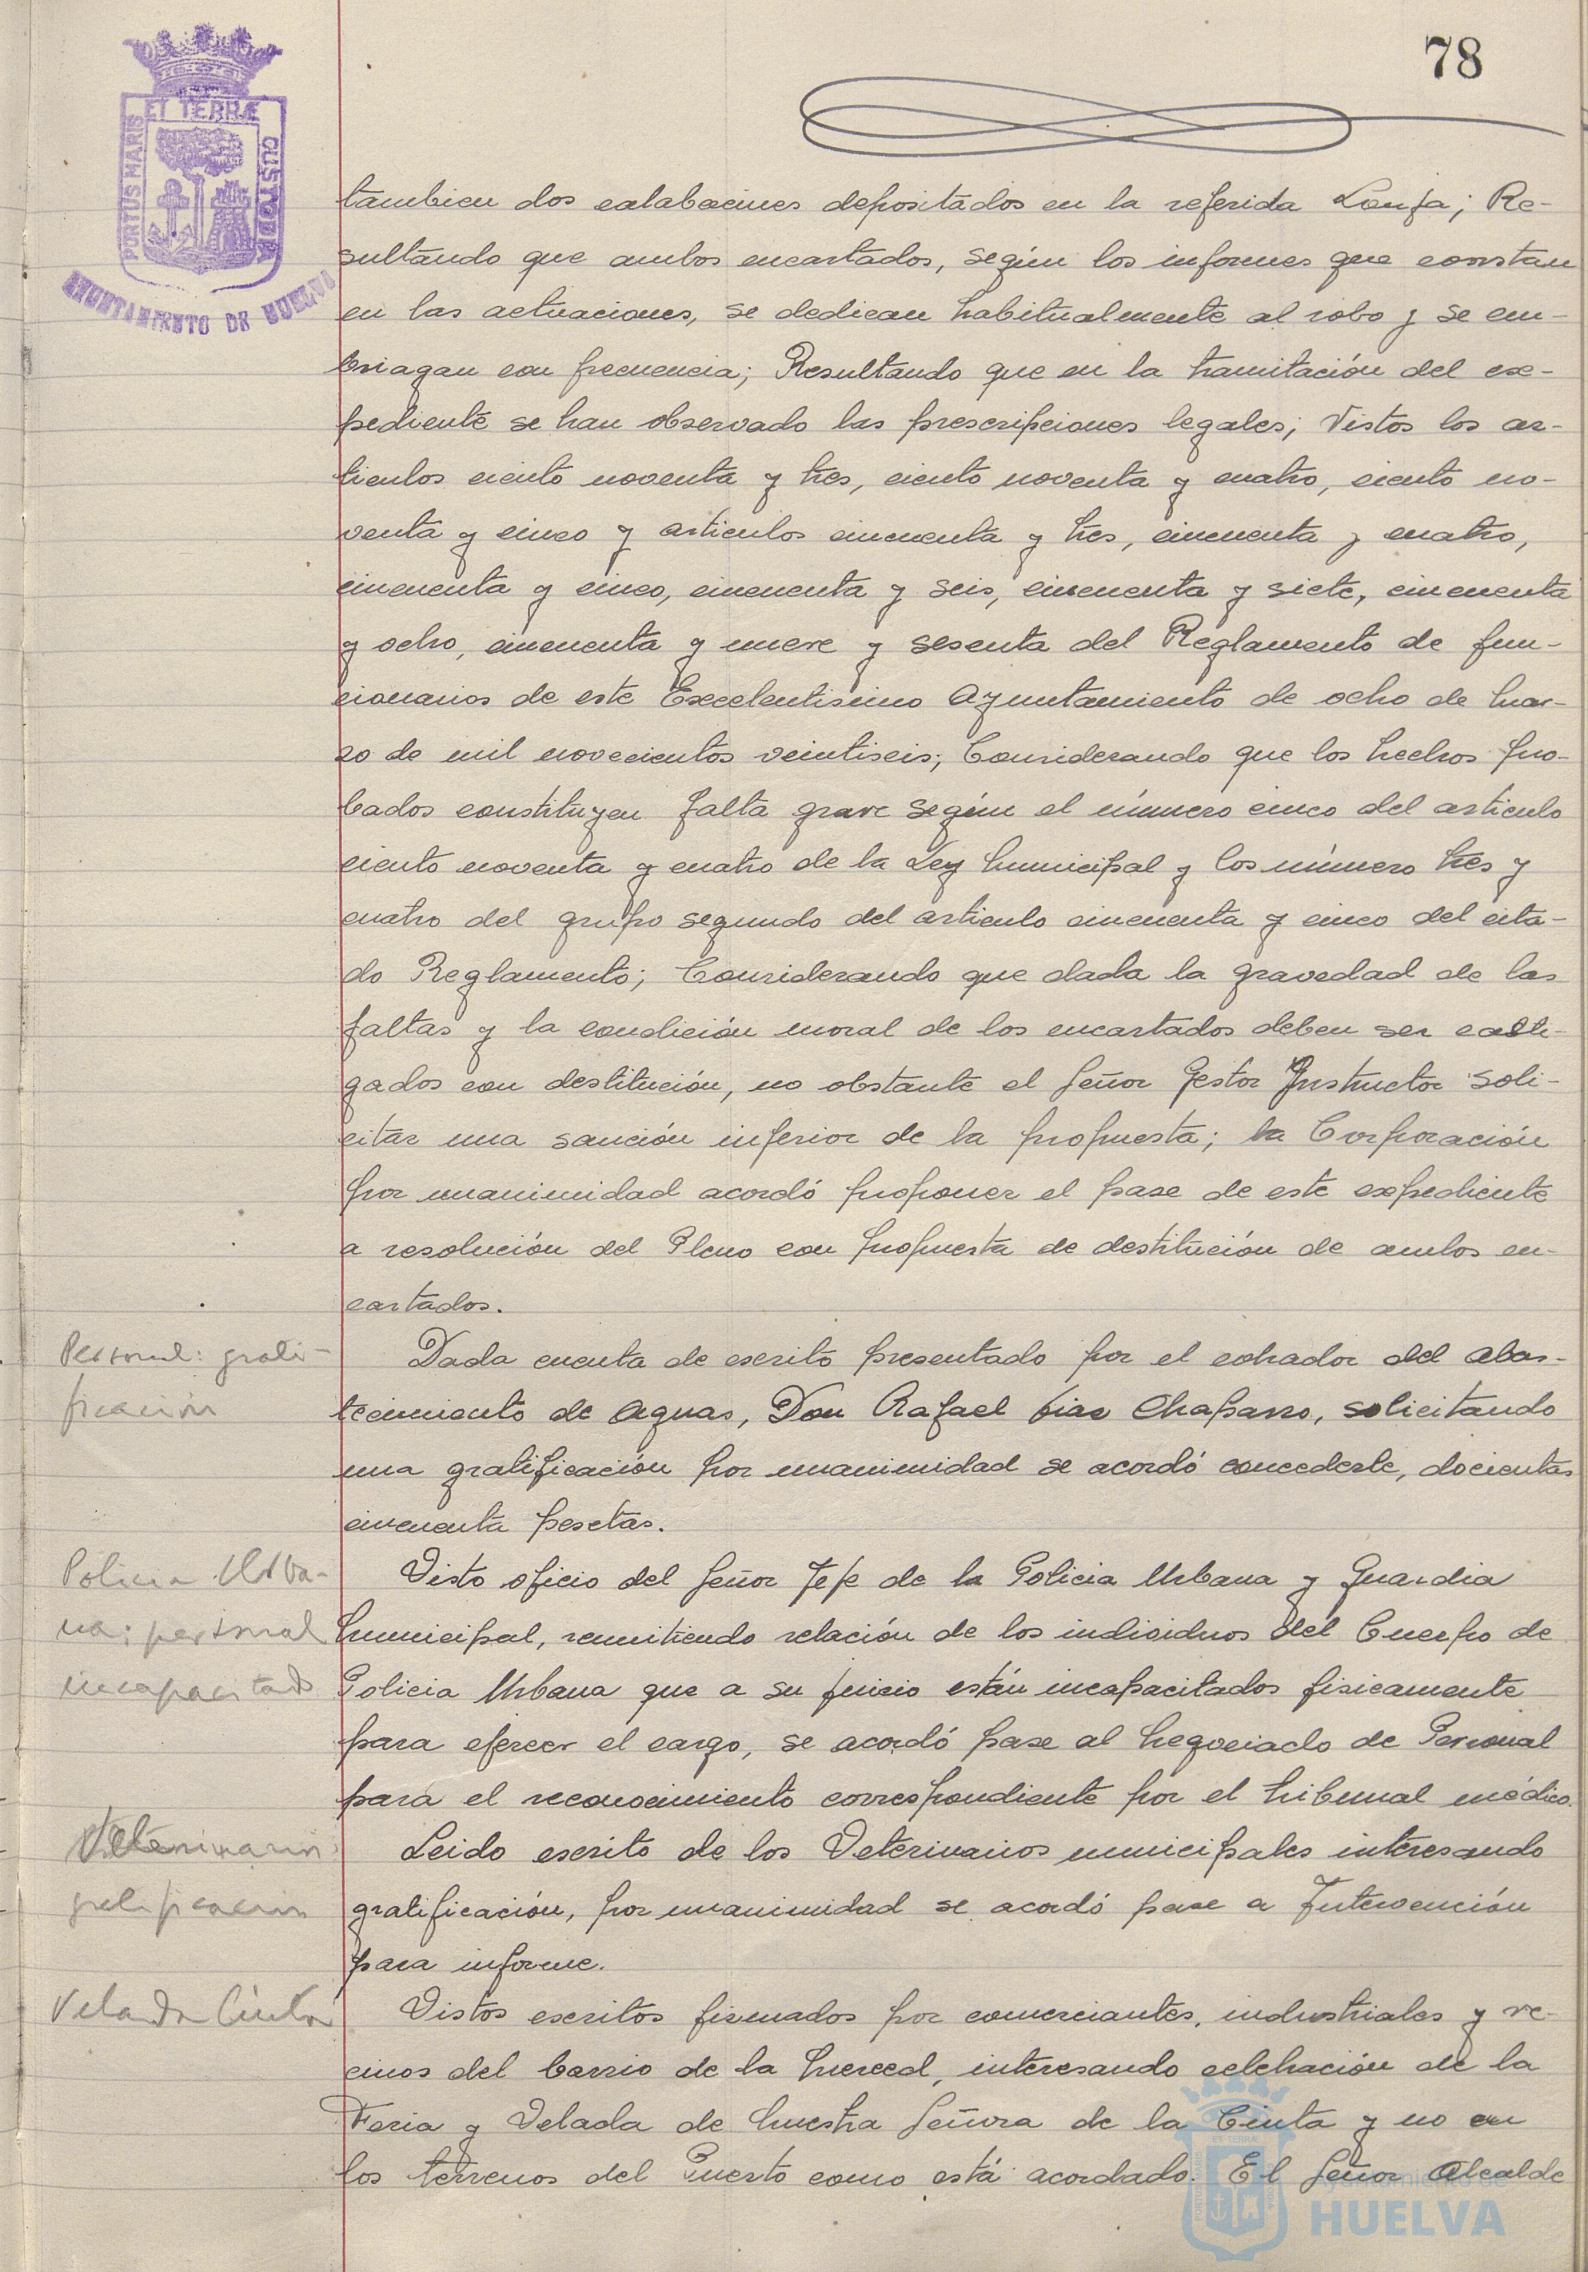 78
PORTUS MARIS ET TERRÆ CUSTODIA
AYUNTAMIENTO DE HUELVA
tambien dos calabacines depositados en la referida Lonja; Re-
sultando que ambos encartados, según los informes que constan
en las actuaciones, se dedican habitualmente al robo y se em-
briagan con frecuencia; Resultando que en la tramitación del ex-
pediente se han observado las prescripciones legales; Vistos los ar-
ticulos ciento noventa y tres, ciento noventa y cuatro, ciento no-
venta y cinco y articulos cincuenta y tres, cincuenta y cuatro,
cincuenta y cinco, cincuenta y seis, cincuenta y siete, cincuenta
y ocho, cincuenta y nueve y sesenta del Reglamento de fun-
cionarios de este Excelentisimo Ayuntamiento de ocho de Mar-
zo de mil novecientos veintiseis; Considerando que los hechos pro-
bados constituyen falta grave según el número cinco del articulo
ciento noventa y cuatro de la Ley Municipal y los número tres y
cuatro del grupo segundo del articulo cincuenta y cinco del cita-
do Reglamento; Considerando que dada la gravedad de las
faltas y la condición moral de los encartados deben ser casti-
gados con destitución, no obstante el Señor Gestor Instructor soli-
citar una sanción inferior de la propuesta; la Corporación
por unanimidad acordó proponer el pase de este expediente
a resolución del Pleno con propuesta de destitución de ambos en-
cartados.
Personal: grati-
ficación
Dada cuenta de escrito presentado por el cobrador del abas-
tecimiento de Aguas, Don Rafael Diaz Chaparro, solicitando
una gratificación por unanimidad se acordó concederle, docientas
cincuenta pesetas.
Policia Urba-
na: personal
incapacitado
Visto oficio del Señor Jefe de la Policia Urbana y Guardia
Municipal, remitiendo relación de los individuos del Cuerpo de
Policia Urbana que a su juicio están incapacitados fisicamente
para ejercer el cargo, se acordó pase al Negociado de Personal
para el reconocimiento correspondiente por el Tribunal médico.
Veterinarios
gratificacion
Leido escrito de los Veterinarios municipales interesando
gratificación, por unanimidad se acordó pase a Intervención
para informe.
Velada Cinta
Vistos escritos firmados por comerciantes, industriales y ve-
cinos del barrio de la Merced, interesando celebración de la
Feria y Velada de Nuestra Señora de la Cinta y no en
los terrenos del Puerto como está acordado. El Señor Alcalde
Ayuntamiento de
HUELVA